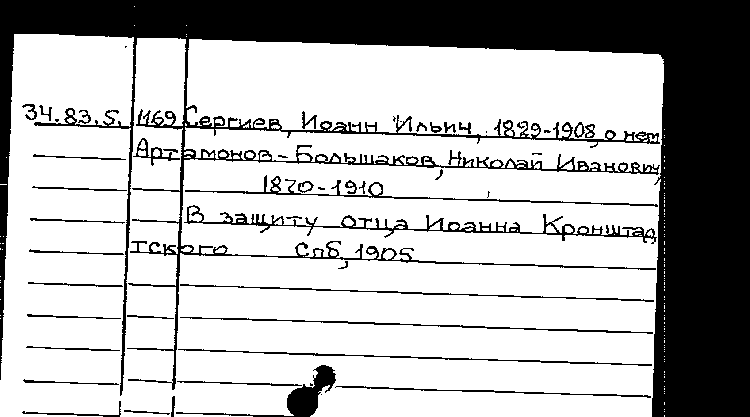 34.83.5. 1169 Сергиев, Иоанн Ильич, 1829-1908, о нем
Артамонов-Большаков, Николай Иванович,
1870-1910
В защиту отца Иоанна Кронштад
тского СПб, 1905